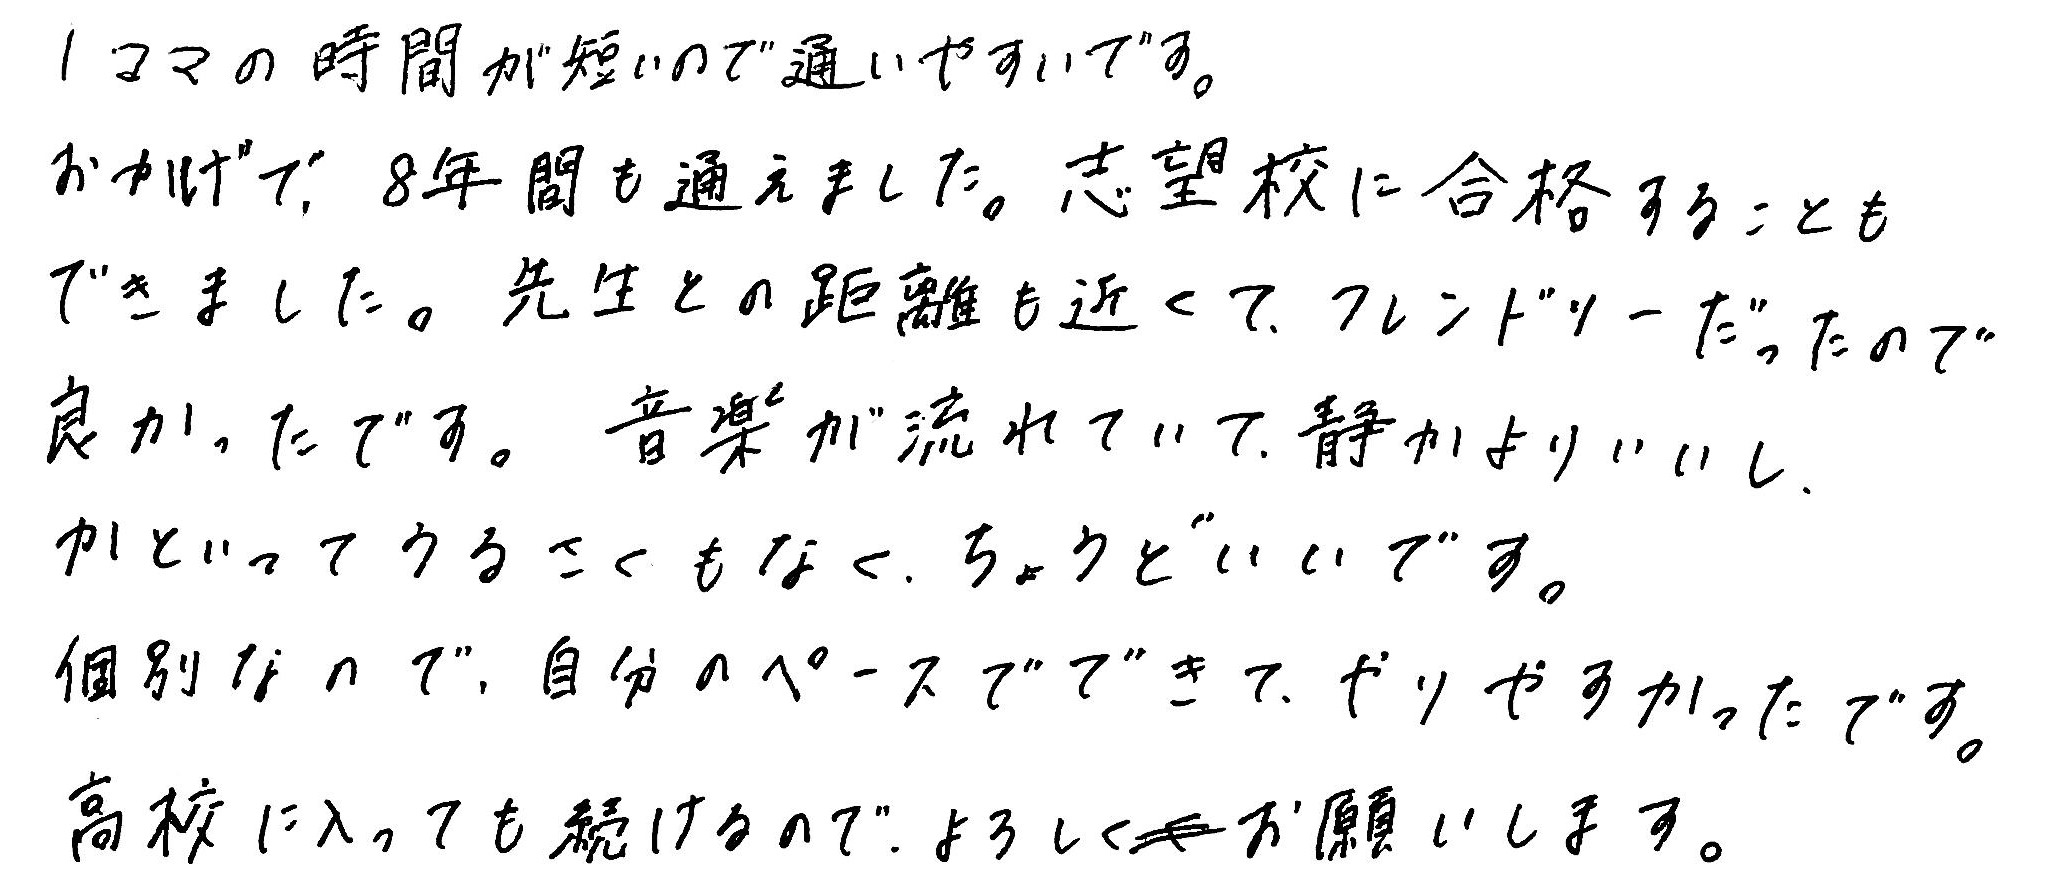 1コマの時間が短いので通いやすいです。
おかげで、8年間も通えました。志望校に合格することも
できました。先生との距離も近くて、フレンドリーだったので
良かったです。音楽が流れていて、静かよりいいし、
かといってうるさくもなく、ちょうどいいです。
個別なので、自分のペースでできて、やりやすかったです。
高校に入っても続けるので、よろしくお願いします。